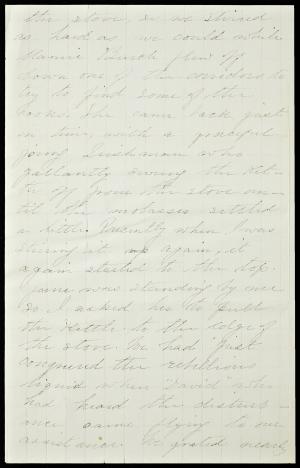 the stove, so we stirred
as hard as we could while
Mamie Church flew off
down one of the corridors to
try to find some of the
cooks. She came back just
in time, with a graceful
young Irishman who
gallantly swung the ket-
tle off from the stove un-
til the molasses settled
a little. Recently when I was
stirring it up again, it
again started to the top.
Jane was standing by me
so I asked her to pull
the kettle to the edge of
the stove. We had just
conquered the rebellious
liquid when "David" who
had heard the disturb-
ance came flying to our
assistance. He grated nearly